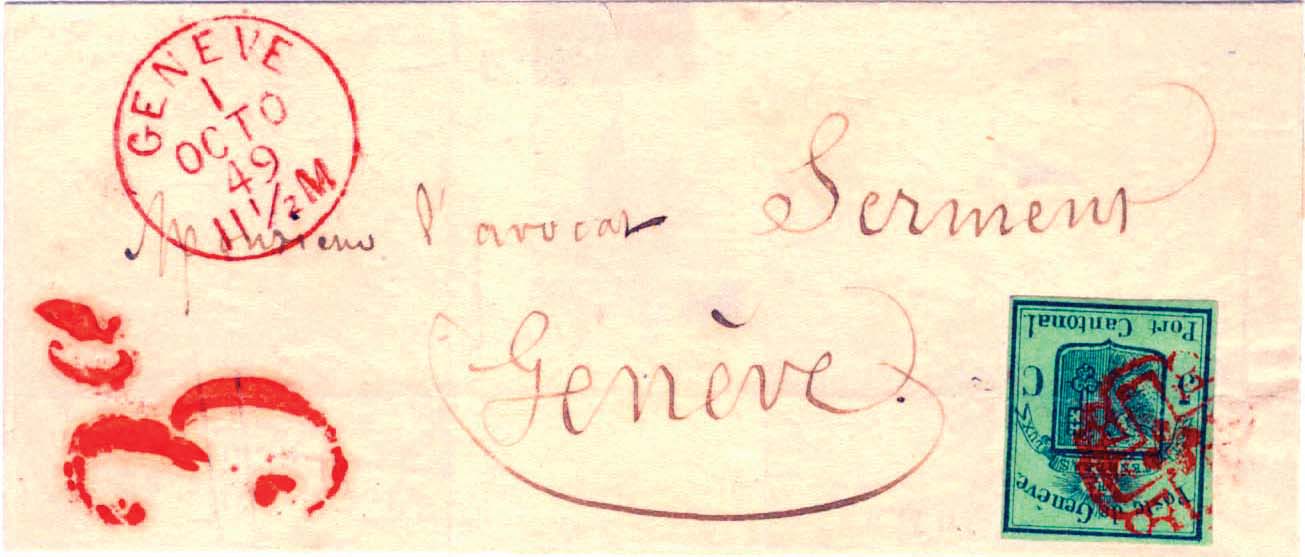 GENEVE
1
OCTO
49
11 1/2 M
Monsieur l'avocat Serment
Genève.
Poste de Genève
5 C
Port Cantonal